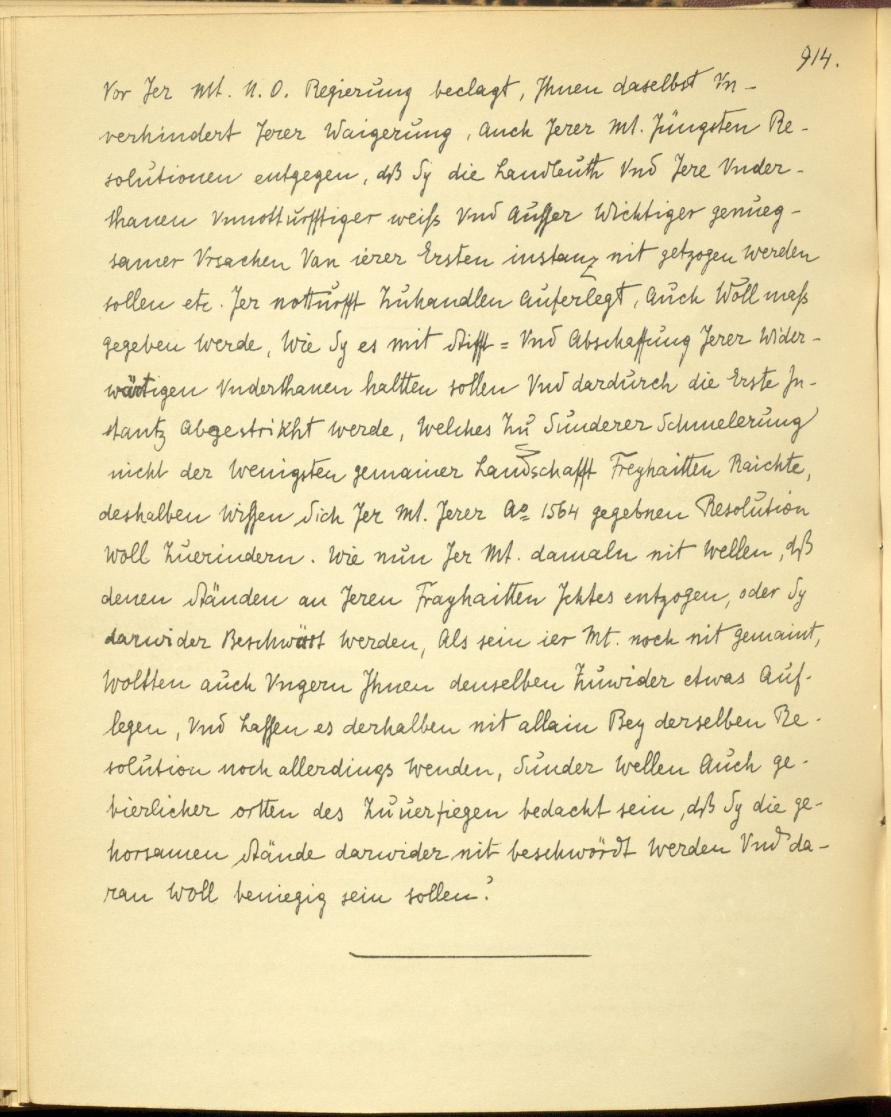 914.
Vor Jer Mt. N. O. Regierung beclagt, Ihnen daselbst Vn-
verhindert Jerer Waigerung, auch Jerer Mt. Jüngsten Re-
solutionen entgegen, dß Sy die Landleuth Vnd Jere Vnder-
thanen Vnnotturfftiger weiß Vnd ausser Wichtiger genueg-
samer Vrsachen Van ierer Ersten instanz nit getzogen werden
sollen etc. Jer notturfft Zuhandlen auferlegt, auch Woll maß
gegeben werde, Wie Sy es mit Stifft= Vnd Abschaffung Jerer Wider-
wärtigen Vnderthanen haltten sollen Vnd dardurch die Erste In-
stantz abgestrikht werde, Welches Zu Sunderer Schmelerung
nicht der Wenigsten gemainer Landschafft Freyhaitten Raichte,
deshalben Wissen Sich Jer Mt. Jerer Ao 1564 gegebnen Resolution
Woll Zuerindern. Wie nun Jer Mt. damaln nit Wellen, dß
denen Ständen an Jeren Frayhaitten Ichtes entzogen, oder Sy
darwider Beschwärt Werden, Als sein ier Mt. noch nit gemaint,
Woltten auch Vngern Ihnen denselben Zuwider etwas Auf-
legen, Vnd Lassen es derhalben nit allain Bey derselben Re-
solution noch allerdings Wenden, Sunder Wellen Auch ge-
bierlicher ortten des Zuuerfiegen bedacht sein, dß Sy die ge-
horsamen Stände darwider nit beschwördt Werden Vnd da-
ran Woll beniegig sein sollen.